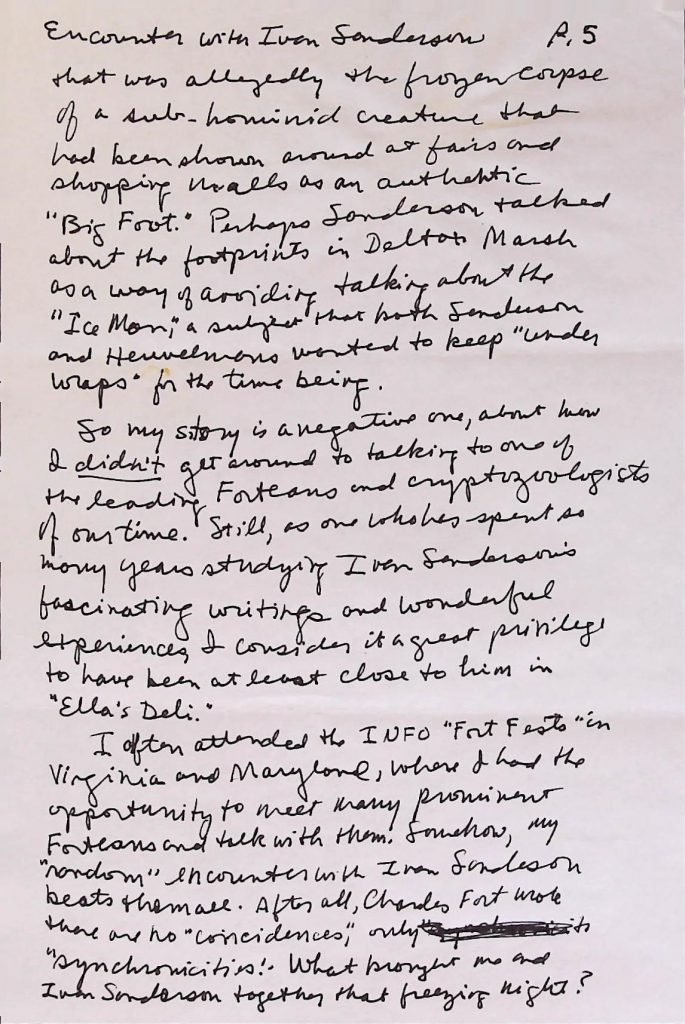 Encounter with Ivan Sanderson P. 5
that was allegedly the frozen corpse
of a sub-hominid creature that
had been shown around at fairs and
shopping malls as an authentic
"Big Foot." Perhaps Sanderson talked
about the footprints in Delta Marsh
as a way of avoiding talking about the
"Ice Man," a subject that both Sanderson
and Heuvelmans wanted to keep "under
wraps" for the time being.
So my story is a negative one, about how
I didn't get around to talking to one of
the leading Forteans and cryptozoologists
of our time. Still, as one who has spent so
many years studying Ivan Sanderson's
fascinating writings and wonderful
experiences, I consider it a great privilege
to have been at least close to him in
"Ella's Deli."
I often attended the INFO "Fort Fests" in
Virginia and Maryland, where I had the
opportunity to meet many prominent
Forteans and talk with them. Somehow, my
"random" encounter with Ivan Sanderson
beats them all. After all, Charles Fort wrote
there are no "coincidences," only
"synchronicities!" What brought me and
Ivan Sanderson together that freezing night?